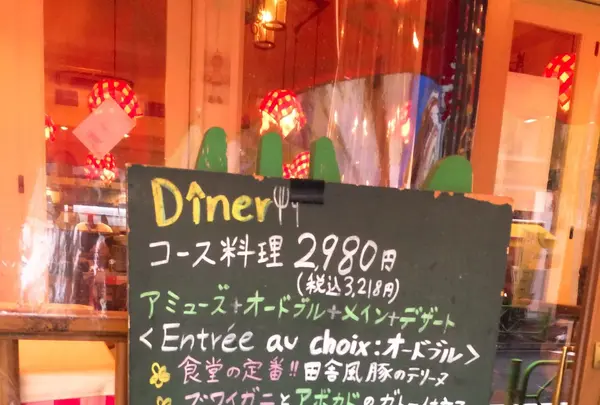 Dîner
コース料理 2,980円
(税込3,218円)
アミューズ+オードブル+メイン+デザート
<Entrée au choix:オードブル>
食堂の定番!! 田舎風豚のテリーヌ
ズワイガニとアボカドのガトー仕立て